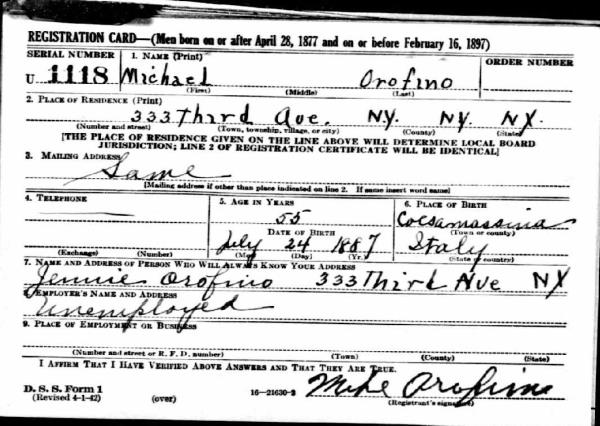 REGISTRATION CARD—(Men born on or after April 28, 1877 and on or before February 16, 1897)
SERIAL NUMBER 1. NAME (Print) ORDER NUMBER
U 1118 Michael Orofino
(First) (Middle) (Last)
2. PLACE OF RESIDENCE (Print)
333 Third Ave. N.Y. N.Y. N.Y.
(Number and street) (Town, township, village, or city) (County) (State)
[THE PLACE OF RESIDENCE GIVEN ON THE LINE ABOVE WILL DETERMINE LOCAL BOARD
JURISDICTION; LINE 2 OF REGISTRATION CERTIFICATE WILL BE IDENTICAL]
3. MAILING ADDRESS
Same
[Mailing address if other than place indicated on line 2. If same insert word same]
4. TELEPHONE 5. AGE IN YEARS 6. PLACE OF BIRTH
55 Cocsamassima
DATE OF BIRTH (Town or county)
July 24 1887 Italy
(Exchange) (Number) (Mo.) (Day) (Yr.) (State or country)
7. NAME AND ADDRESS OF PERSON WHO WILL ALWAYS KNOW YOUR ADDRESS
Jennie Orofino 333 Third Ave NY
8. EMPLOYER'S NAME AND ADDRESS
Unemployed
9. PLACE OF EMPLOYMENT OR BUSINESS
(Number and street or R. F. D. number) (Town) (County) (State)
I AFFIRM THAT I HAVE VERIFIED ABOVE ANSWERS AND THAT THEY ARE TRUE.
D. S. S. Form 1 Mike Orofino
(Revised 4-1-42) (over) 16—21630-2 (Registrant's signature)